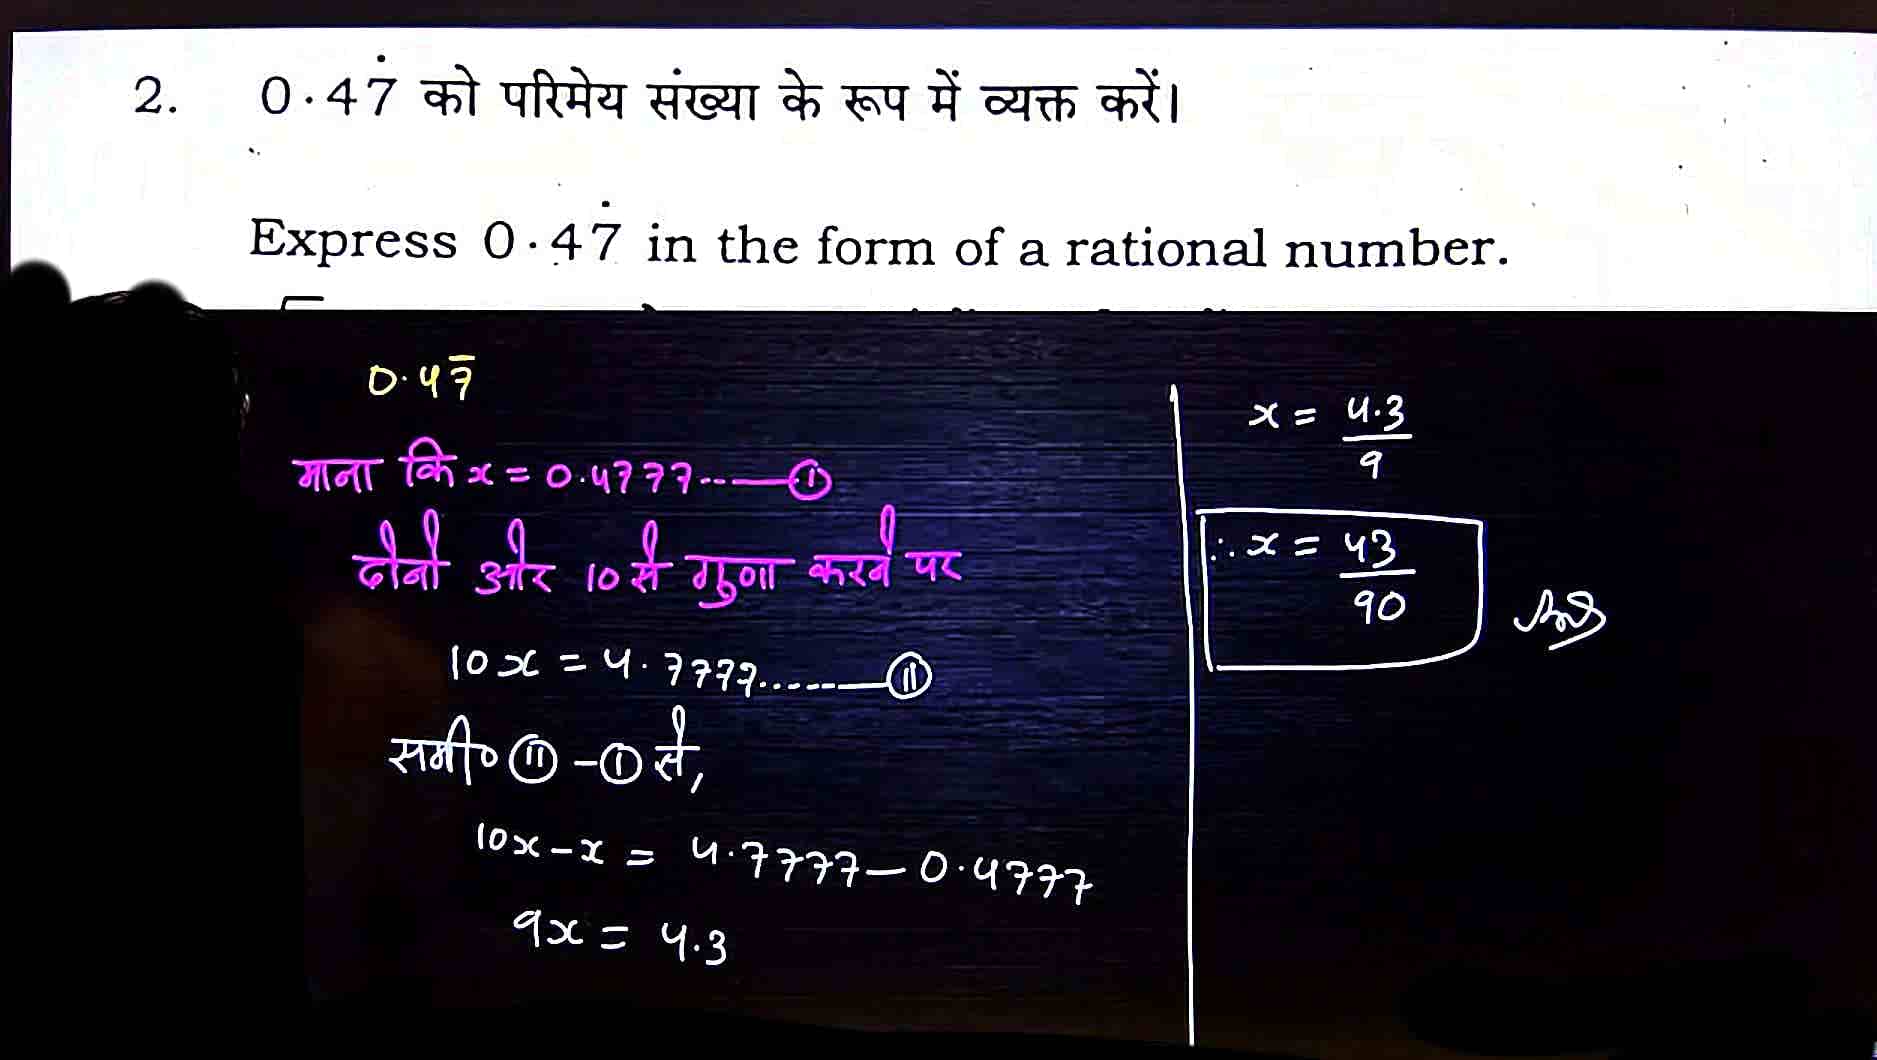 2. 0·47̇ को परिमेय संख्या के रूप में व्यक्त करें।
Express 0·47̇ in the form of a rational number.
0.47̅
माना कि x = 0.4777...—①
दोनों ओर 10 से गुणा करने पर
10x = 4.7777......—⑪
समी० ⑪ - ① से,
10x - x = 4.7777 - 0.4777
9x = 4.3
x = 4.3/9
∴ x = 43/90 Ans